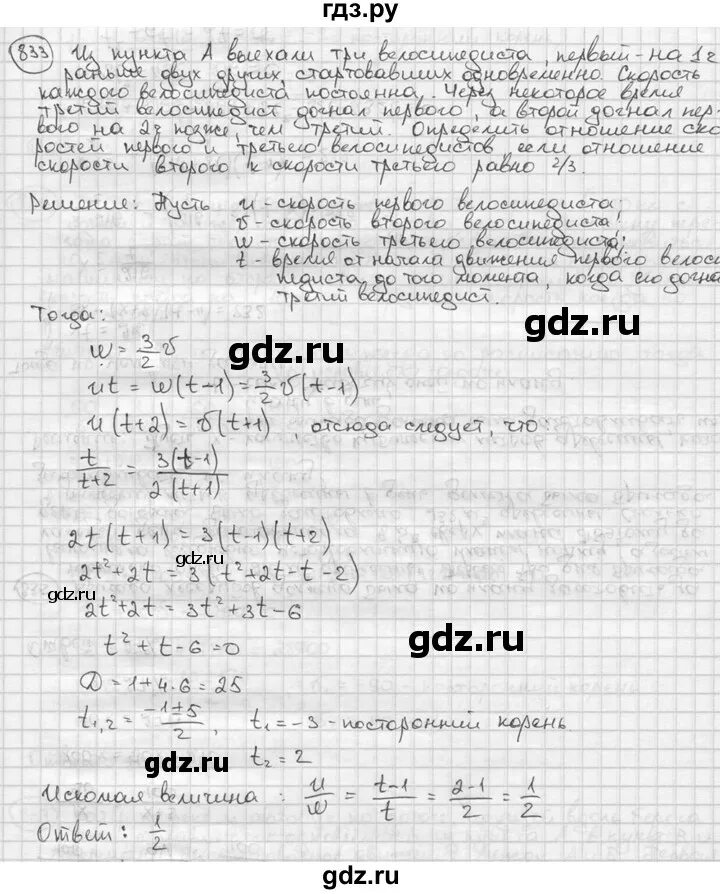 гдз.ру
833 Из пункта А выехали три велосипедиста, первый - на 1 ч
раньше двух других, стартовавших одновременно. Скорость
каждого велосипедиста постоянна. Через некоторое время
третий велосипедист догнал первого, а второй догнал пер-
вого на 2ч позже, чем третий. Определить отношение ско-
ростей первого и третьего велосипедистов, если отношение
скорости второго к скорости третьего равно 2/3.
Решение: Пусть u - скорость первого велосипедиста;
v - скорость второго велосипедиста;
w - скорость третьего велосипедиста;
t - время от начала движения первого велоси
педиста до того момента, когда его догна
третий велосипедист.
Тогда:
w = 3/2 v
gdz.ru gdz.ru
ut = w(t-1) = 3/2 v(t-1)
u(t+2) = v(t+1) , отсюда следует, что
t/(t+2) = 3(t-1)/2(t+1)
2t(t+1) = 3(t-1)(t+2)
gdz.ru
2t²+2t = 3(t²+2t-t-2)
2t²+2t = 3t²+3t-6
gdz.ru
t²+t-6=0
D = 1+4·6 = 25
t₁,₂ = (-1±5)/2 , t₁ = -3 - посторонний корень
t₂ = 2
gdz.ru
Искомая величина : u/w = (t-1)/t = (2-1)/2 = 1/2
gdz.ru
Ответ: 1/2
gdz.ru